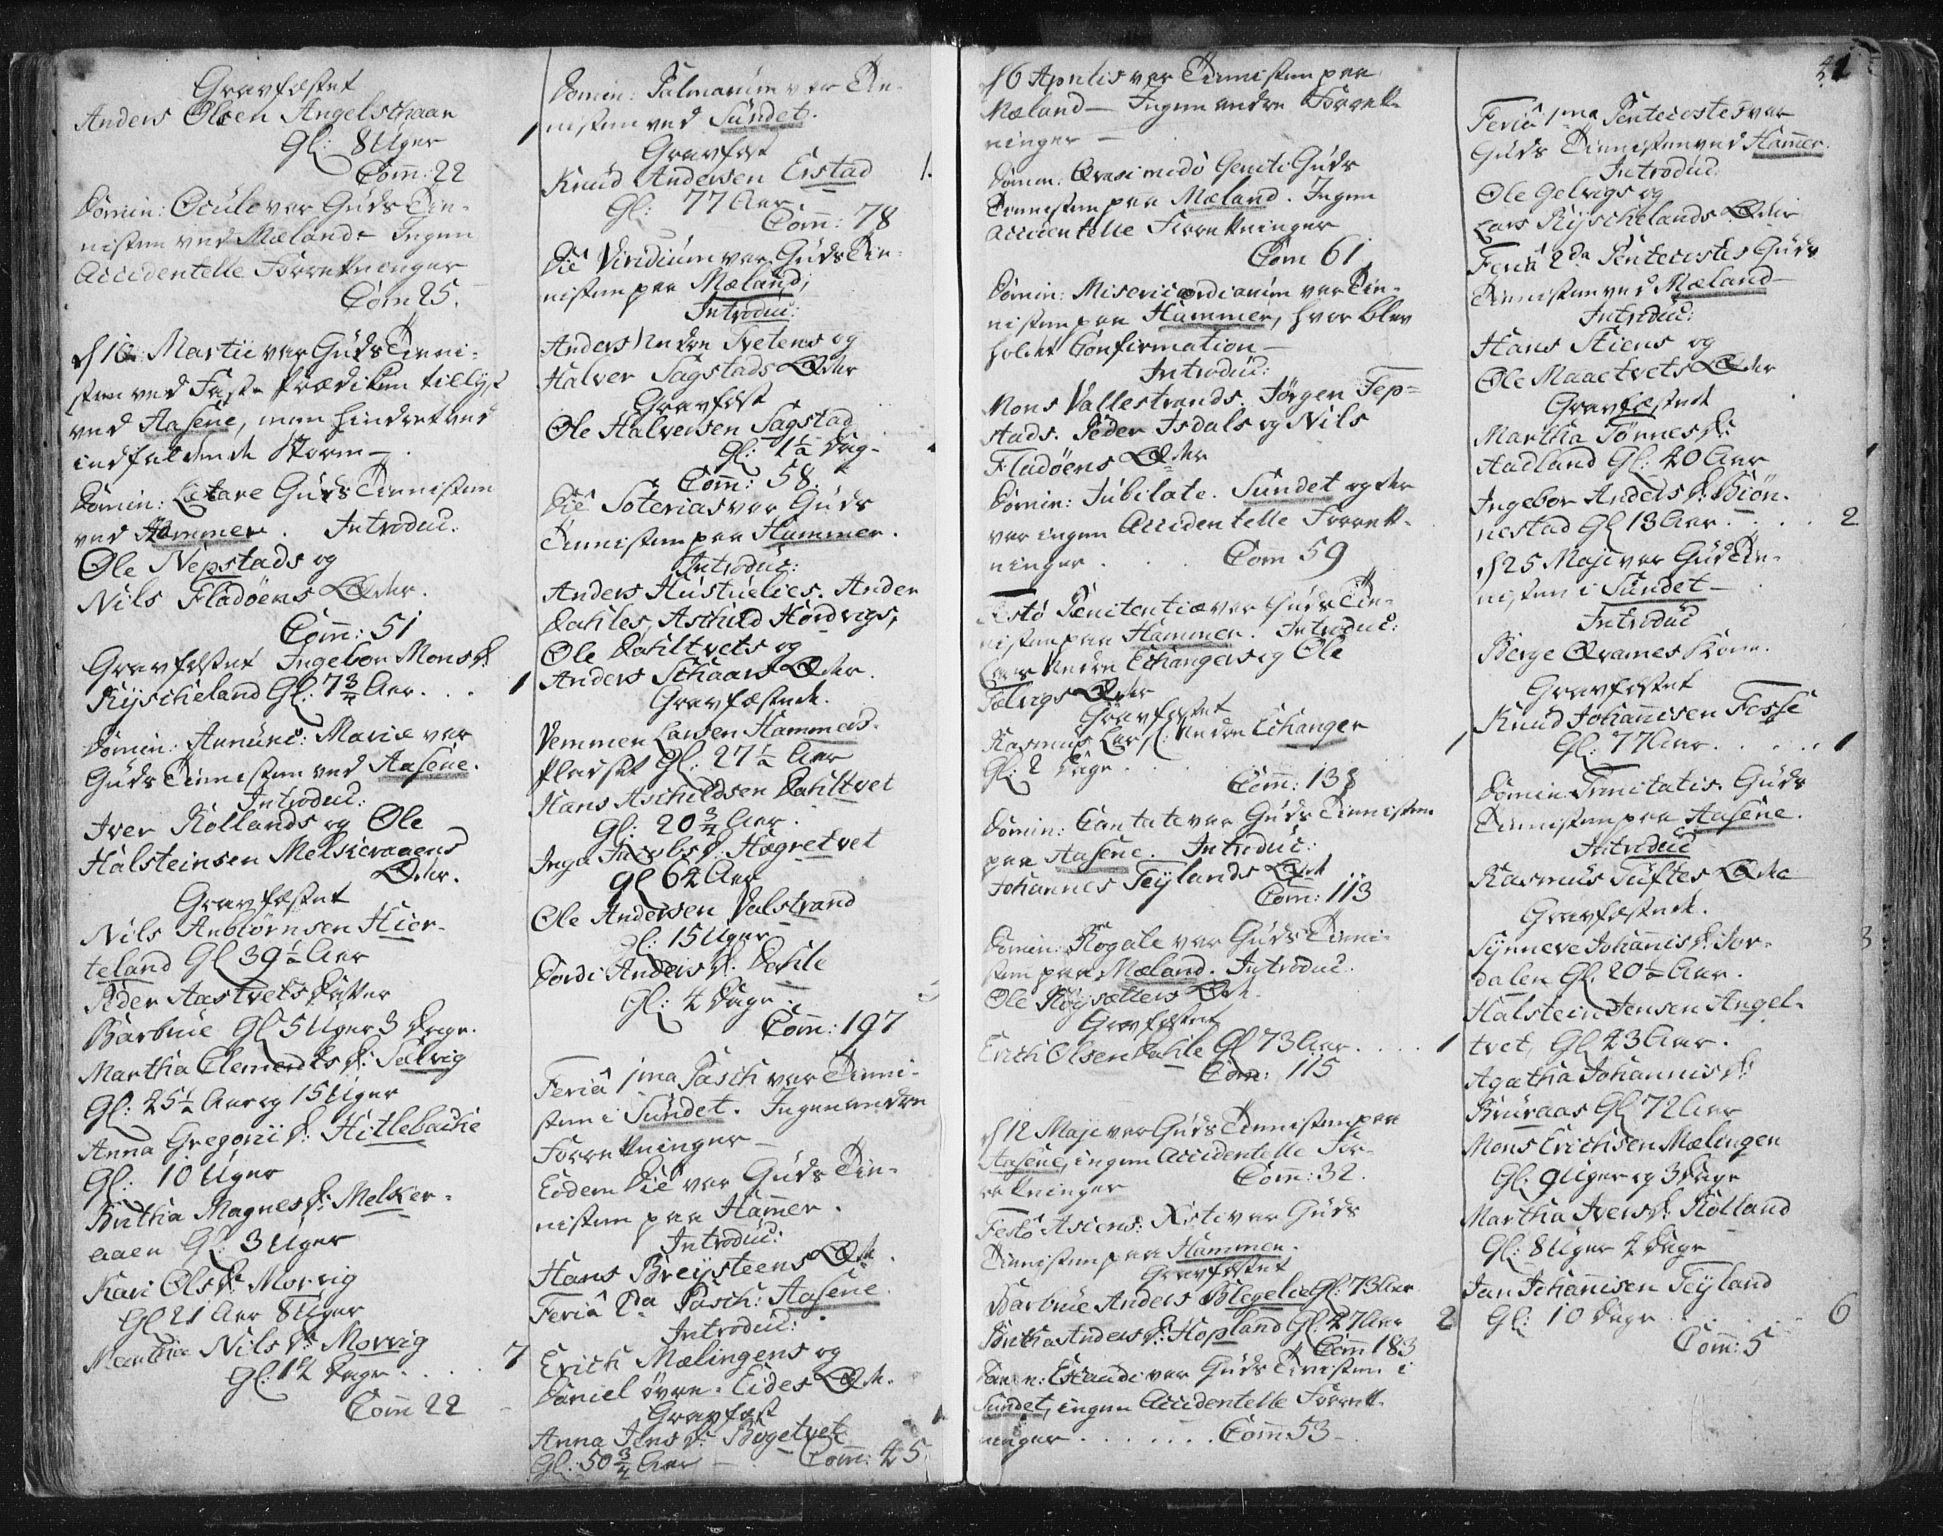 Gravfæstet
Anders Olsen Angelschaar
Gl: 8 Uger 1
Com̄: 22
Domin: Oculi var Guds Tie-
nisten ved Mæland - Ingen
Accidentelle Forretninger
Com̄ 25.
Martii var Guds Tieni-
sten ved Faste Prædiken tillyst
ved Aasene, men hindret ved
indfaldende Storm -
Domin: Lætare Guds Tienisten
ved Hammer. Introduc:
Ole Nepstads og
Nils Fladøens Qder.
Com̄: 51
Gravfæstet Ingebor Mons D:
Kyscheland Gl: 7 3/4 Aar . . . 1
Domin: Annunc: Mariæ var
Guds Tienisten ved Aasene.
Introduc:
Iver Kollands og Ole
Halsteinsen Melkeraaens
Qder.
Gravfæstet
Nils Anbiørnsen Hier-
teland Gl 39 1/2 Aar
Peder Aastvets Datter
Barbrue Gl 5 Uger 3 Dage.
Martha Clemends D: Solvig
Gl: 25 1/2 Aar og 15 Uger
Anna Gregorii D: Hitlebache
Gl: 10 Uger
Britha Magnes D: Melker-
aaen Gl: 3 Uger
Kari Ols D: Morvig
Gl 21 Aar 8 Uger
Martha Nils D: Morvig
Gl: 12 Dage . . . 7
Com̄ 22
Domin: Palmarum var Tie-
nisten ved Sundet.
Gravfæst
Knud Andersen Erstad 1.
Gl: 77 Aar
Com̄: 78
Die Viridium var Guds Tie-
nisten paa Mæland,
Introduc:
Anders Nedre Tvetens og
Halver Sagstads Qder
Gravfæst
Ole Halversen Sagstad
Gl: 1 1/2 Dag-
Com̄: 58.
Die Soterias var Guds
Tienisten paa Hammer.
Introduc:
Anders Hustuelies. Anders
Dahles, Aschild Hordvigs,
Ole Dahltvets og
Anders Schaars Qder.
Gravfæstede.
Vemmer Larsen Hammers-
Pladset Gl: 27 1/2 Aar
Hans Aschildsen Dahltvet
Gl: 20 3/4 Aar.
Inga Jacobs D: Hægretvet
Gl 62 Aar
Ole Andersen Valstrand
Gl: 15 Uger
Dordi Anders D: Dahle
Gl: 4 Dage.
Com̄: 197
Feriâ 1ma Pasch var Tieni-
sten i Sundet. Ingen andre
Forretninger -
Eodem Die var Guds Tie-
nisten paa Ham̄er.
Introduc:
Hans Breysteens Qde.
Feriâ 2da Pasch: Aasene.
Introduc:
Erich Mælingens og
Daniel øvre-Eides Qde.
Gravfæst
Anna Jens D: Bogetvet
Gl: 50 3/4 Aar - Com̄: 45
d 6 Aprilis var Tienisten paa
Mæland - Ingen andre Forret-
ninger -
Domin: Qvasimodo Geniti Guds
Tienisten paa Mæland. Ingen
Accidentelle Forretninger
Com 61
Domin: Misericordiarum var Tie-
nisten paa Hammer, hvor blev
holdet Confirmation -
Introduc:
Mons Vallestrands. Jørgen Tep-
stads. Peder Isdals og Nils
Fladøens Qder
Domin: Jubilate. Sundet og der
var ingen Accidentelle Forret-
ninger . . . Com 59
Festo Penitentiæ var Guds Tie-
nisten paa Hammer. Introduc:
Lars Nedre Echangers og Ole
Qder
Gravfæstet
Rasmus Lars S: Nedre Echanger
Gl: 2 Dage . . . 1
Com̄: 138
Domin: Cantate var Guds Tienisten
paa Aasene. Introduc:
Johannes Teylands Qde
Com̄: 113
Domin: Rogate var Guds Tieni-
sten paa Mæland. Introduc.
Ole Røysætters Qde.
Gravfæstet
Erich Olsen Dahle Gl 73 Aar . . . . 1
Com: 115
d 12 Maji var Guds Tienisten paa
Aasene, ingen Accidentelle For-
retninger Com̄: 32.
Festo Ascens: Xsti var Guds
Tienisten paa Hammer.
Gravfæstet
Barbrue Anders Blegelie Gl: 73 Aar
Britha Anders D: Hopland Gl: 27 Aar 2
Com̄ 183
Domin: Exaudi var Guds Tienisten i
Sundet, ingen Accidentelle Forret-
ninger . . . . . . . Com̄ 53 -
Feriâ 1ma Pentecostes var
Guds Tienisten ved Ham̄er.
Introduc:
Ole Gelvigs og
Lars Kyschelands Qder
Feriâ 2da Pentecostes Guds
Tienisten ved Mæland -
Introduc:
Hans Stiens og
Ole Maaetvets Qder
Gravfæstede
Martha Tønnes D:
Hadland Gl: 40 Aar
Ingebor Anders D: Biør-
nestad Gl 18 Aar . . . . 2
d 25 Maji var Guds Tie-
nisten i Sundet -
Introduc
Berge Qvames Kone.
Gravfæstet
Knud Johannisen Fosse
Gl: 77 Aar . . . . . 1
Domin Trinitatis. Guds
Tienisten paa Aasene.
Introduc
Rasmus Tuftes Qde
Gravfæstede.
Synneve Johannis D: Jor-
dalen Gl: 20 1/2 Aar.
Halstein Jensen Angel-
tvet, Gl 23 Aar.
Agatha Johannis D:
Bruraas Gl 72 Aar
Mons Erichsen Mælingen
Gl: 9 Uger og 3 Dage
Martha Ivers D: Kolland
Gl: 8 Uger 2 Dage
Jan Johannisen Teyland
Gl: 10 Dage . . . . . 6
Com̄: 5